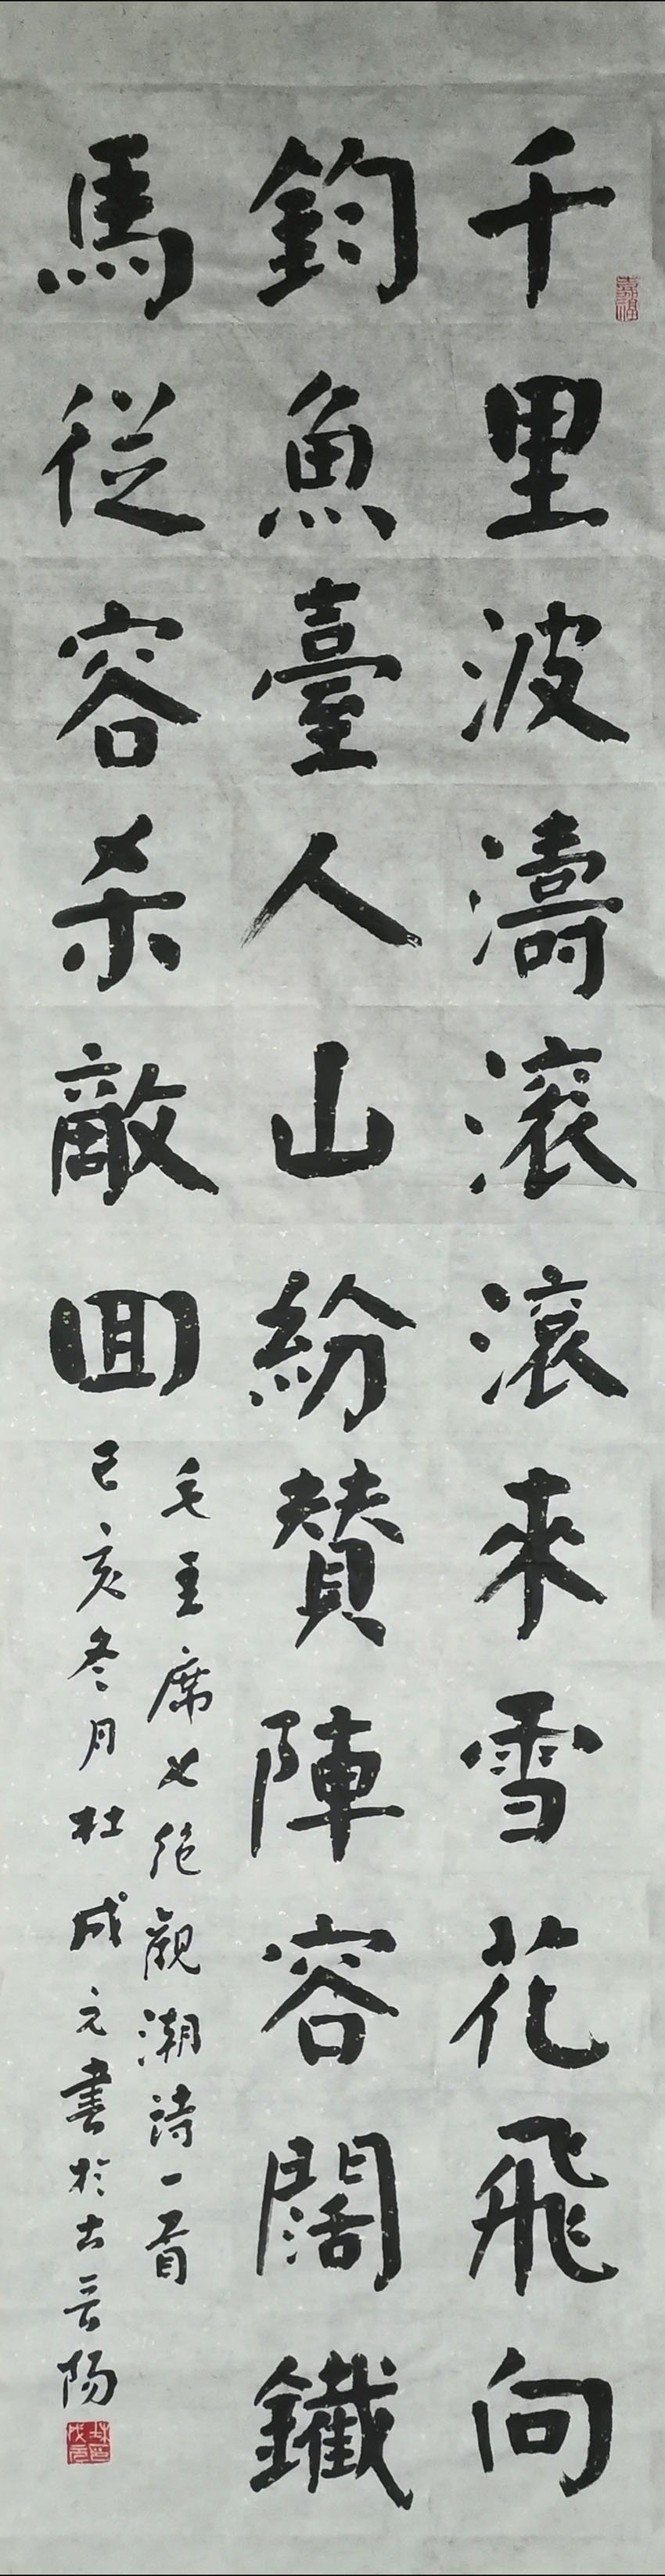 千里波濤滾滾來雪花飛向
鈞魚臺人山紛賛陣容闊鐵
馬從容杀敵回
毛主席七絕觀潮诗一首
己亥冬月杜成元書於古晋陽